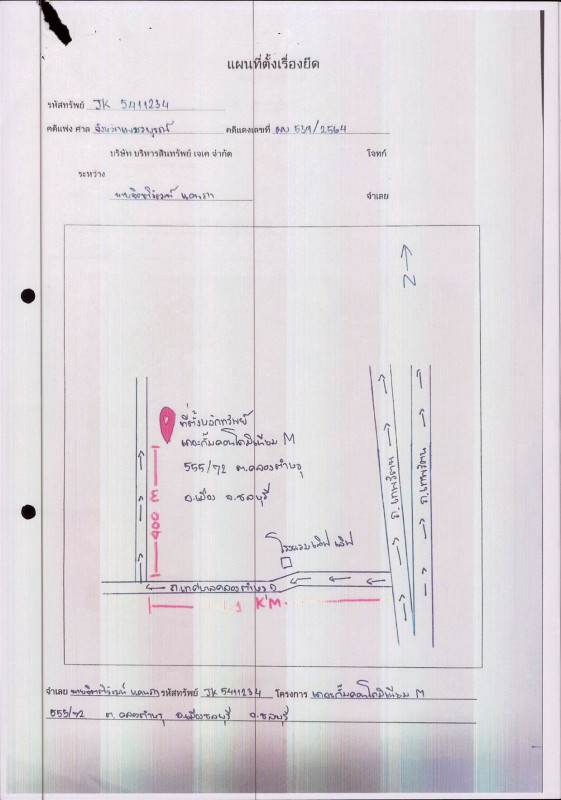 แผนที่ตั้งเรื่องยึด
รหัสทรัพย์ JK 5411234
คดีแพ่ง ศาล จังหวัด คดีแดงเลขที่ 539/2564
บริษัท บริหารสินทรัพย์ เจเค จำกัด โจทก์
ระหว่าง
จำเลย
N
ที่ตั้งบอกทรัพย์
เดอะกั้มคอนโดมิเนียม M
555/72 ต.คลองตำหรุ
อ.เมือง จ.ชลบุรี
400 M
โรงแรม เลิฟ เลิฟ
ถ.เทศบาลคลองตำหรุ 1
1 KM.
ถ.เทพรัตน
ถ.เทพรัตน
จำเลย รหัสทรัพย์ JK 5411234 โครงการ เดอะกั้มคอนโดมิเนียม M
555/72 ต.คลองตำหรุ อ.เมืองชลบุรี จ.ชลบุรี